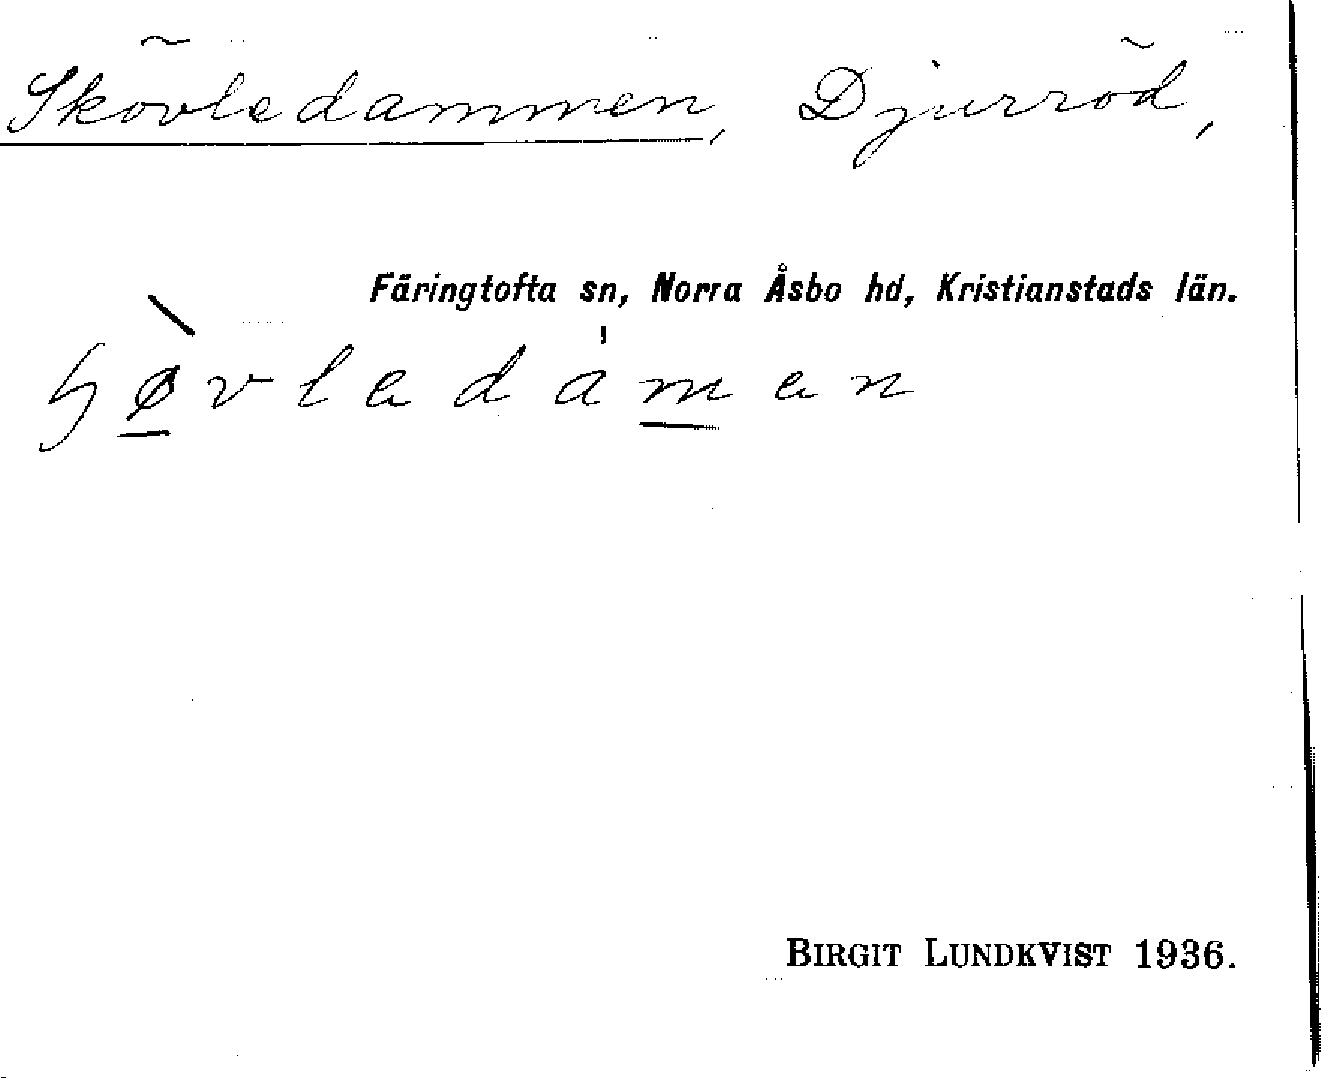 Skövledammen, Djurröd,
Färingtofta sn, Norra Åsbo hd, Kristianstads län.
ɧø̀vledámen
BIRGIT LUNDKVIST 1936.